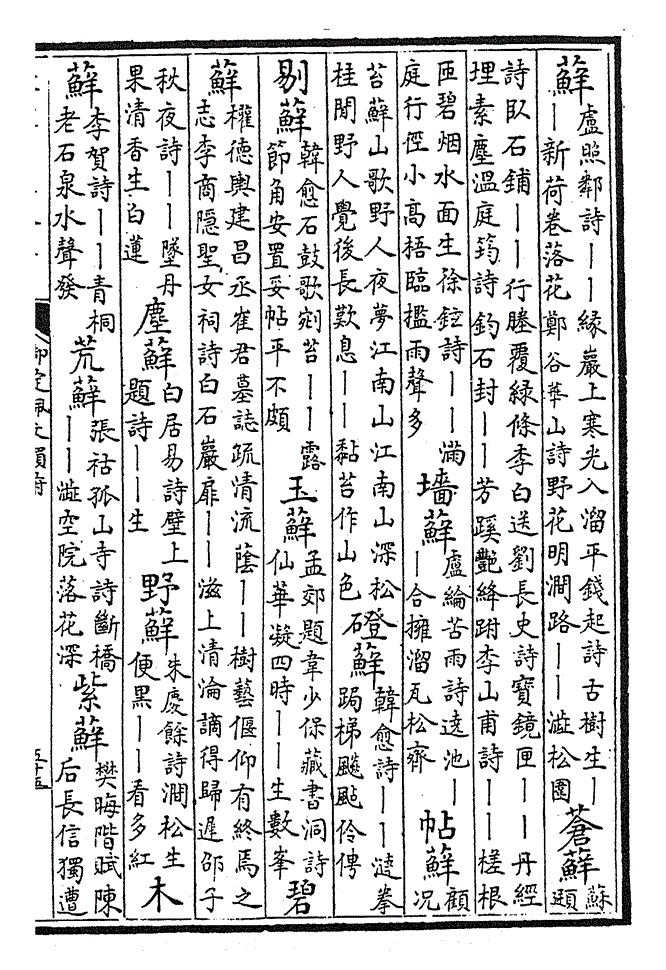 蘚盧照鄰詩｜｜緣巖上寒光入溜平錢起詩古樹生｜
｜新荷卷落花鄭谷華山詩野花明澗路｜｜澁松圍蒼蘚蘇頲
詩臥石鋪｜｜行塍覆綠條李白送劉長史詩寶鏡匣｜｜丹經
埋素塵溫庭筠詩釣石封｜｜芳蹊艷絳跗李山甫詩｜｜槎根
匝碧烟水面生徐鉉詩｜｜滿
庭行徑小高梧臨檻雨聲多墻蘚盧綸苦雨詩遶池｜
｜合擁溜瓦松齊帖蘚顧況
苔蘚山歌野人夜夢江南山江南山深松
桂閒野人覺後長歎息｜｜黏苔作山色磴蘚韓愈詩｜｜澾拳
跼梯飈颭伶俜
剔蘚韓愈石鼓歌剜苔｜｜露
節角安置妥帖平不頗玉蘚孟郊題韋少保藏書洞詩
仙華凝四時｜｜生數峯碧
蘚權德輿建昌丞崔君墓誌疏清流蔭｜｜樹藝偃仰有終焉之
志李商隱聖女祠詩白石巖扉｜｜滋上清淪謫得歸遲邵子
秋夜詩｜｜墜丹
果清香生白蓮塵蘚白居易詩壁上
題詩｜｜生野蘚朱慶餘詩澗松生
便黑｜｜看多紅木
蘚李賀詩｜｜青桐
老石泉水聲發荒蘚張祜孤山寺詩斷橋
｜｜澁空院落花深紫蘚樊晦階賦陳
后長信獨遭